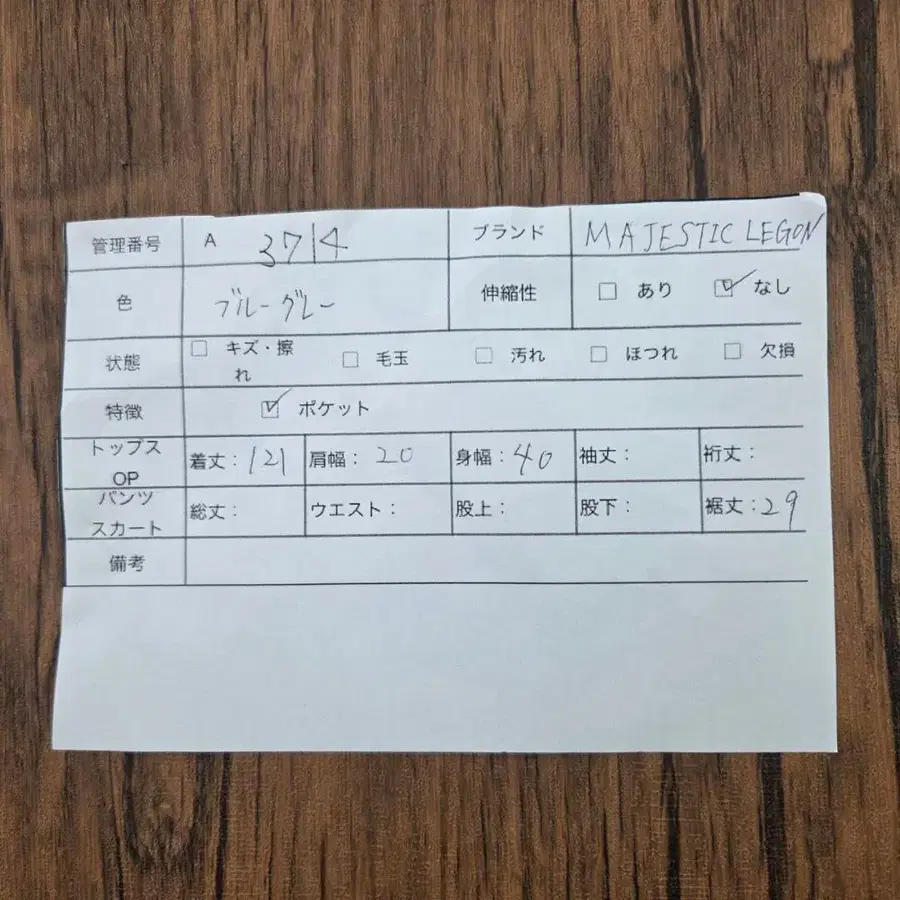 管理番号 A 3714 ブランド MAJESTIC LEGON
色 ブルーグレー 伸縮性 □ あり ☑ なし
状態 □ キズ・擦れ □ 毛玉 □ 汚れ □ ほつれ □ 欠損
特徴 ☑ ポケット
トップス OP 着丈：121 肩幅：20 身幅：40 袖丈： 裄丈：
パンツ スカート 総丈： ウエスト： 股上： 股下： 裾丈：29
備考